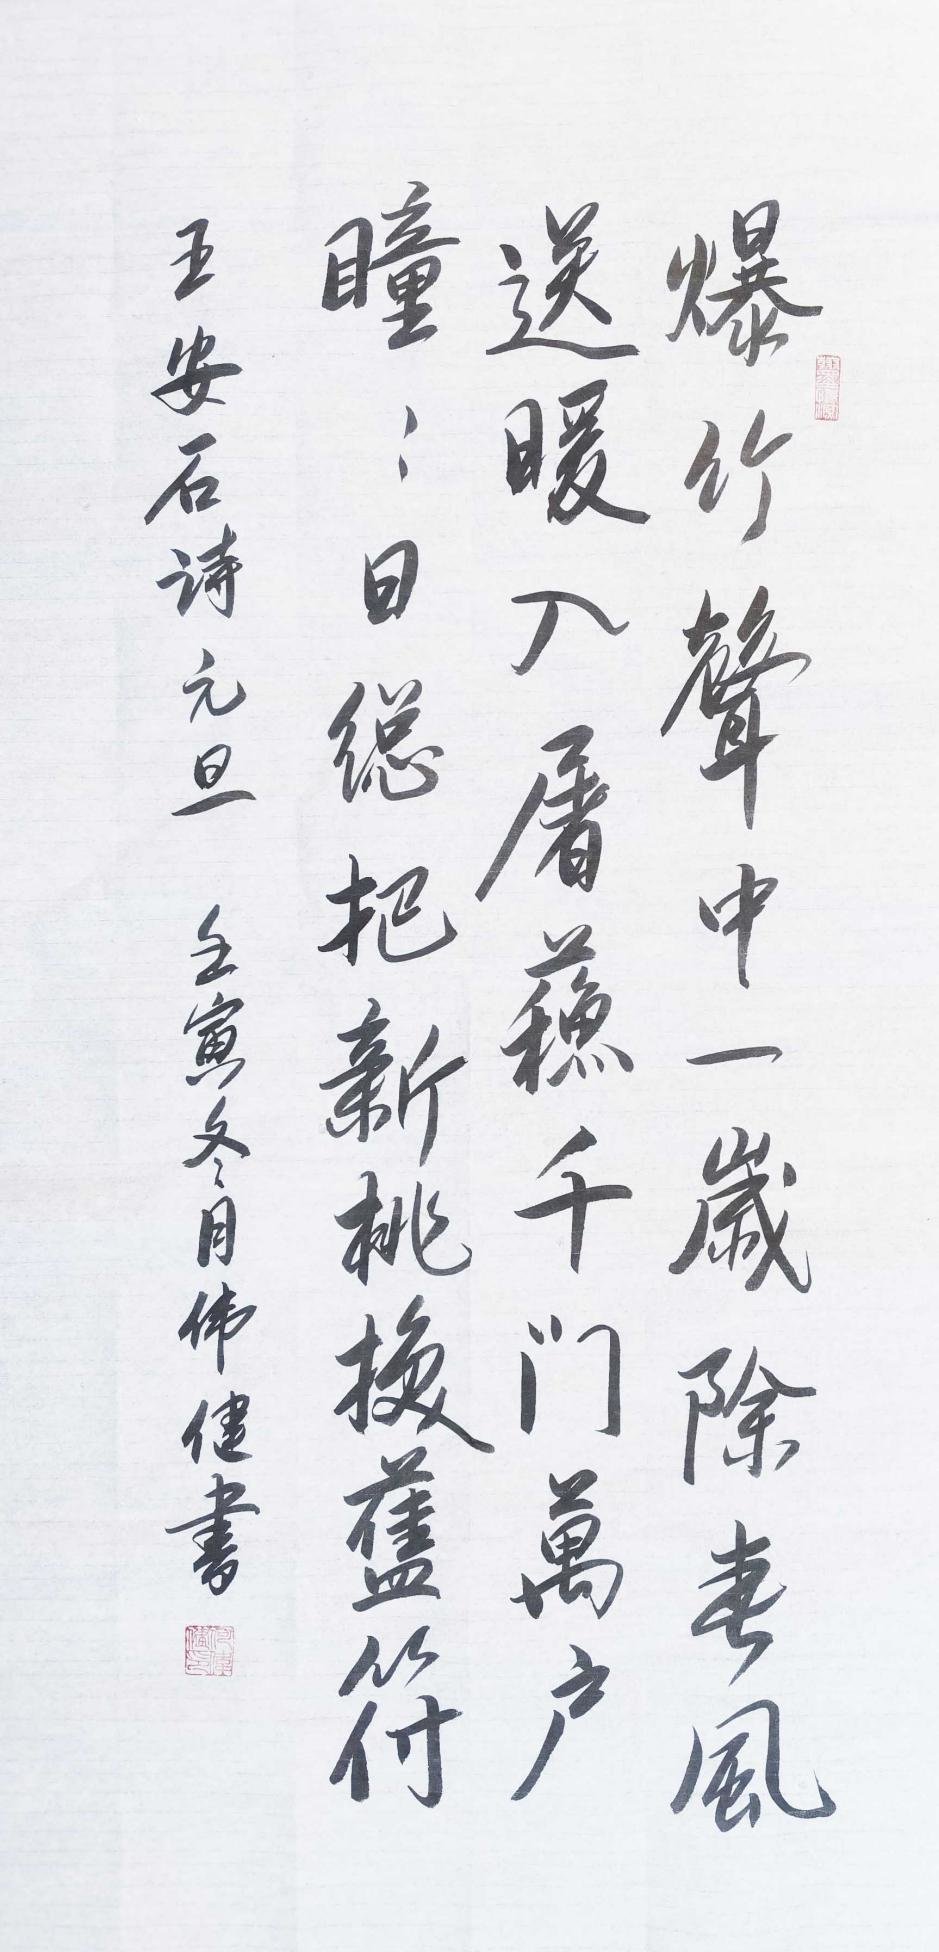 爆竹聲中一歲除春風
送暖入屠蘇千门萬户
瞳〻日総把新桃換舊符
王安石诗元旦 壬寅冬月伟健书